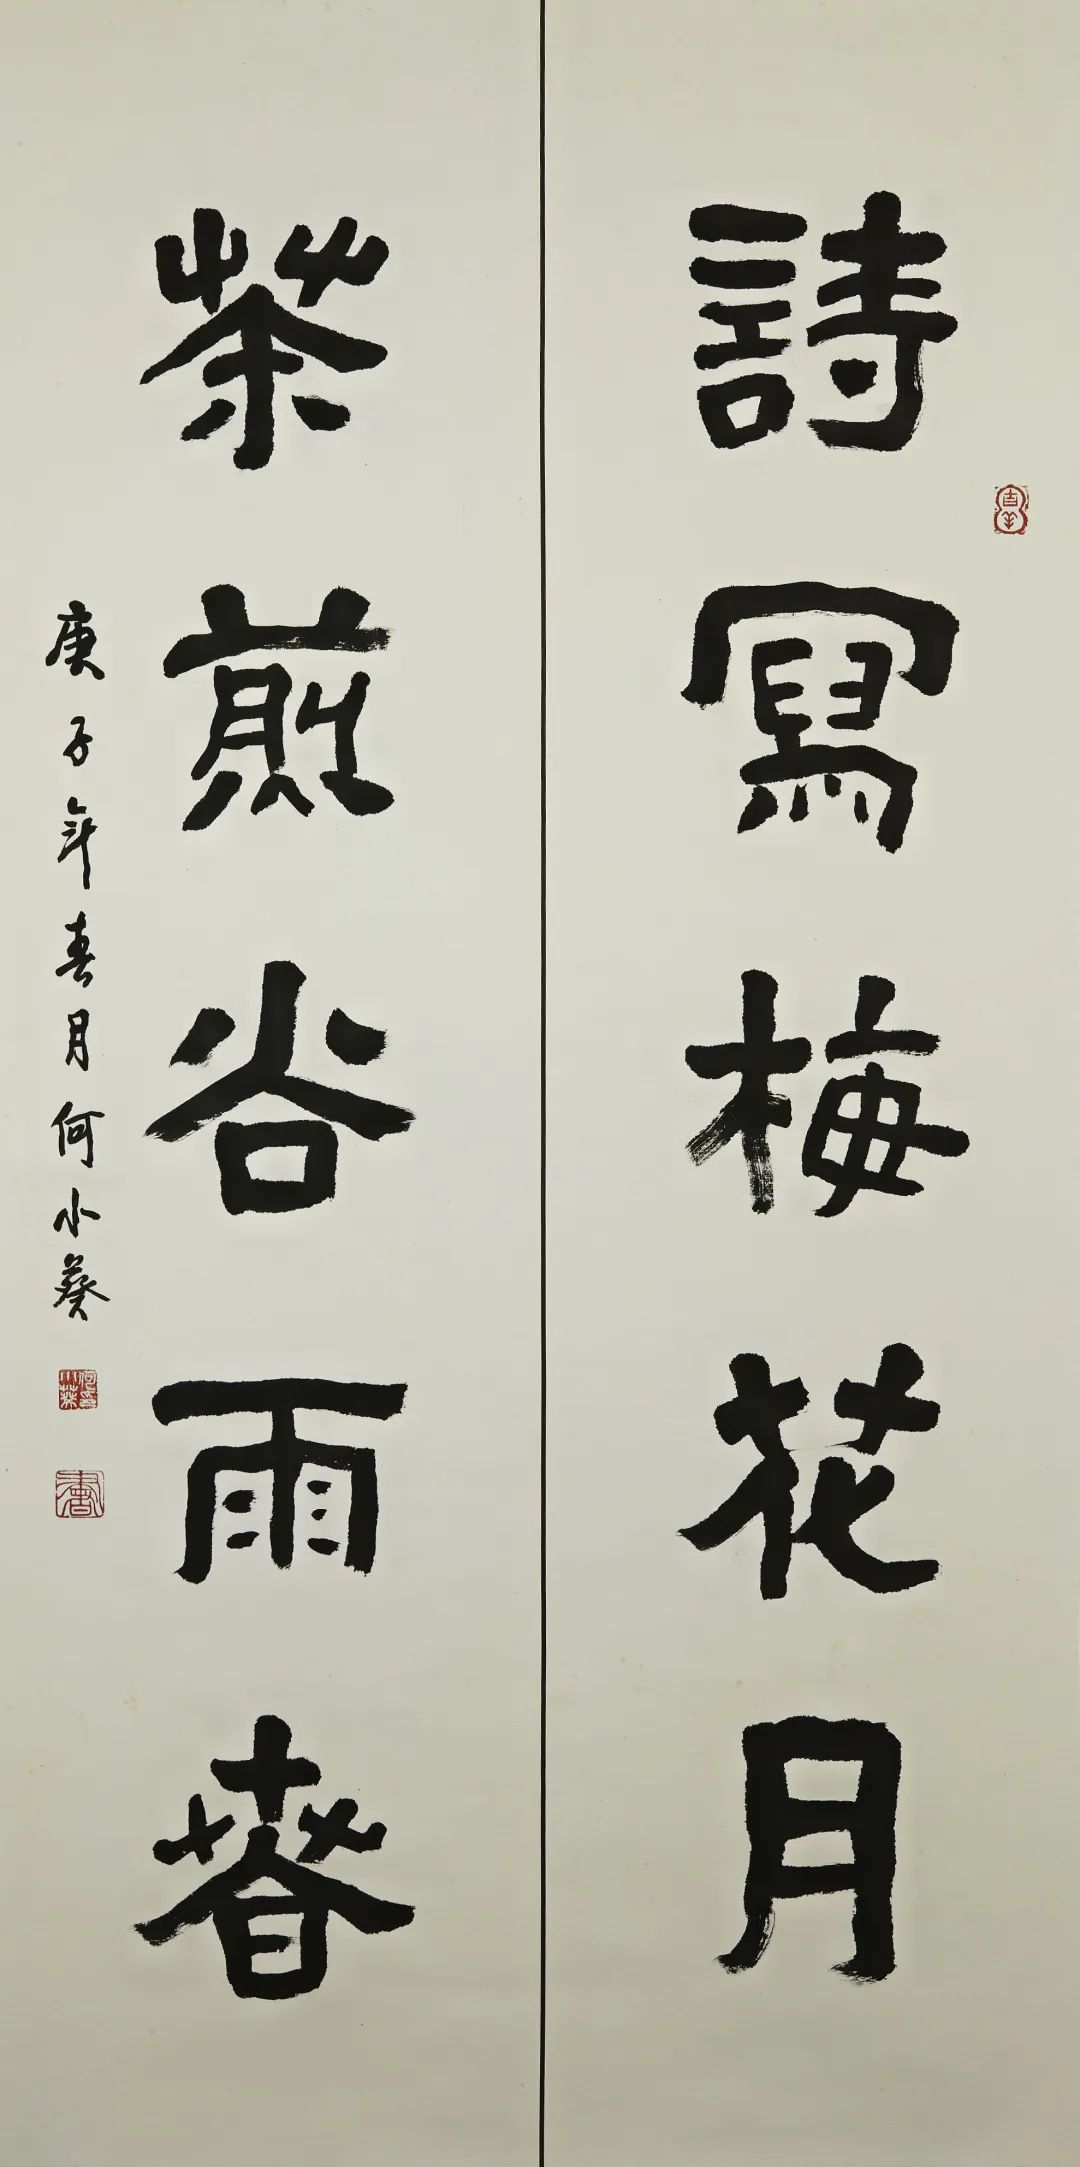 詩寫梅花月
茶煎谷雨春
庚子年春月何小葵